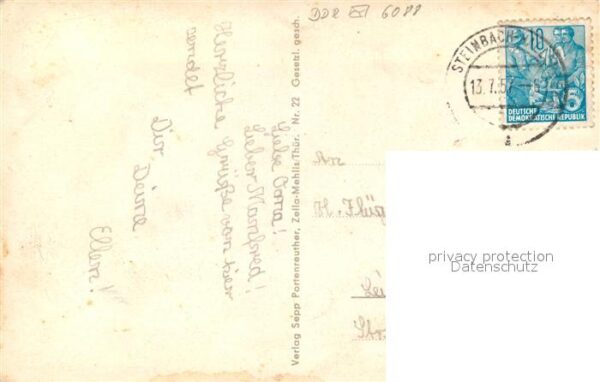 DDR 6088
STEINBACH
13.7.57
10
5
DEUTSCHE
DEMOKRATISCHE REPUBLIK
Liebe Oma!
Lieber Manfred!
Herzliche Grüße von hier
sendet
Dir Deine
Ellen!
Verlag Sepp Portenreuther, Zella-Mehlis/Thür. Nr. 22 Gesetzl. gesch.
An
privacy protection
Datenschutz